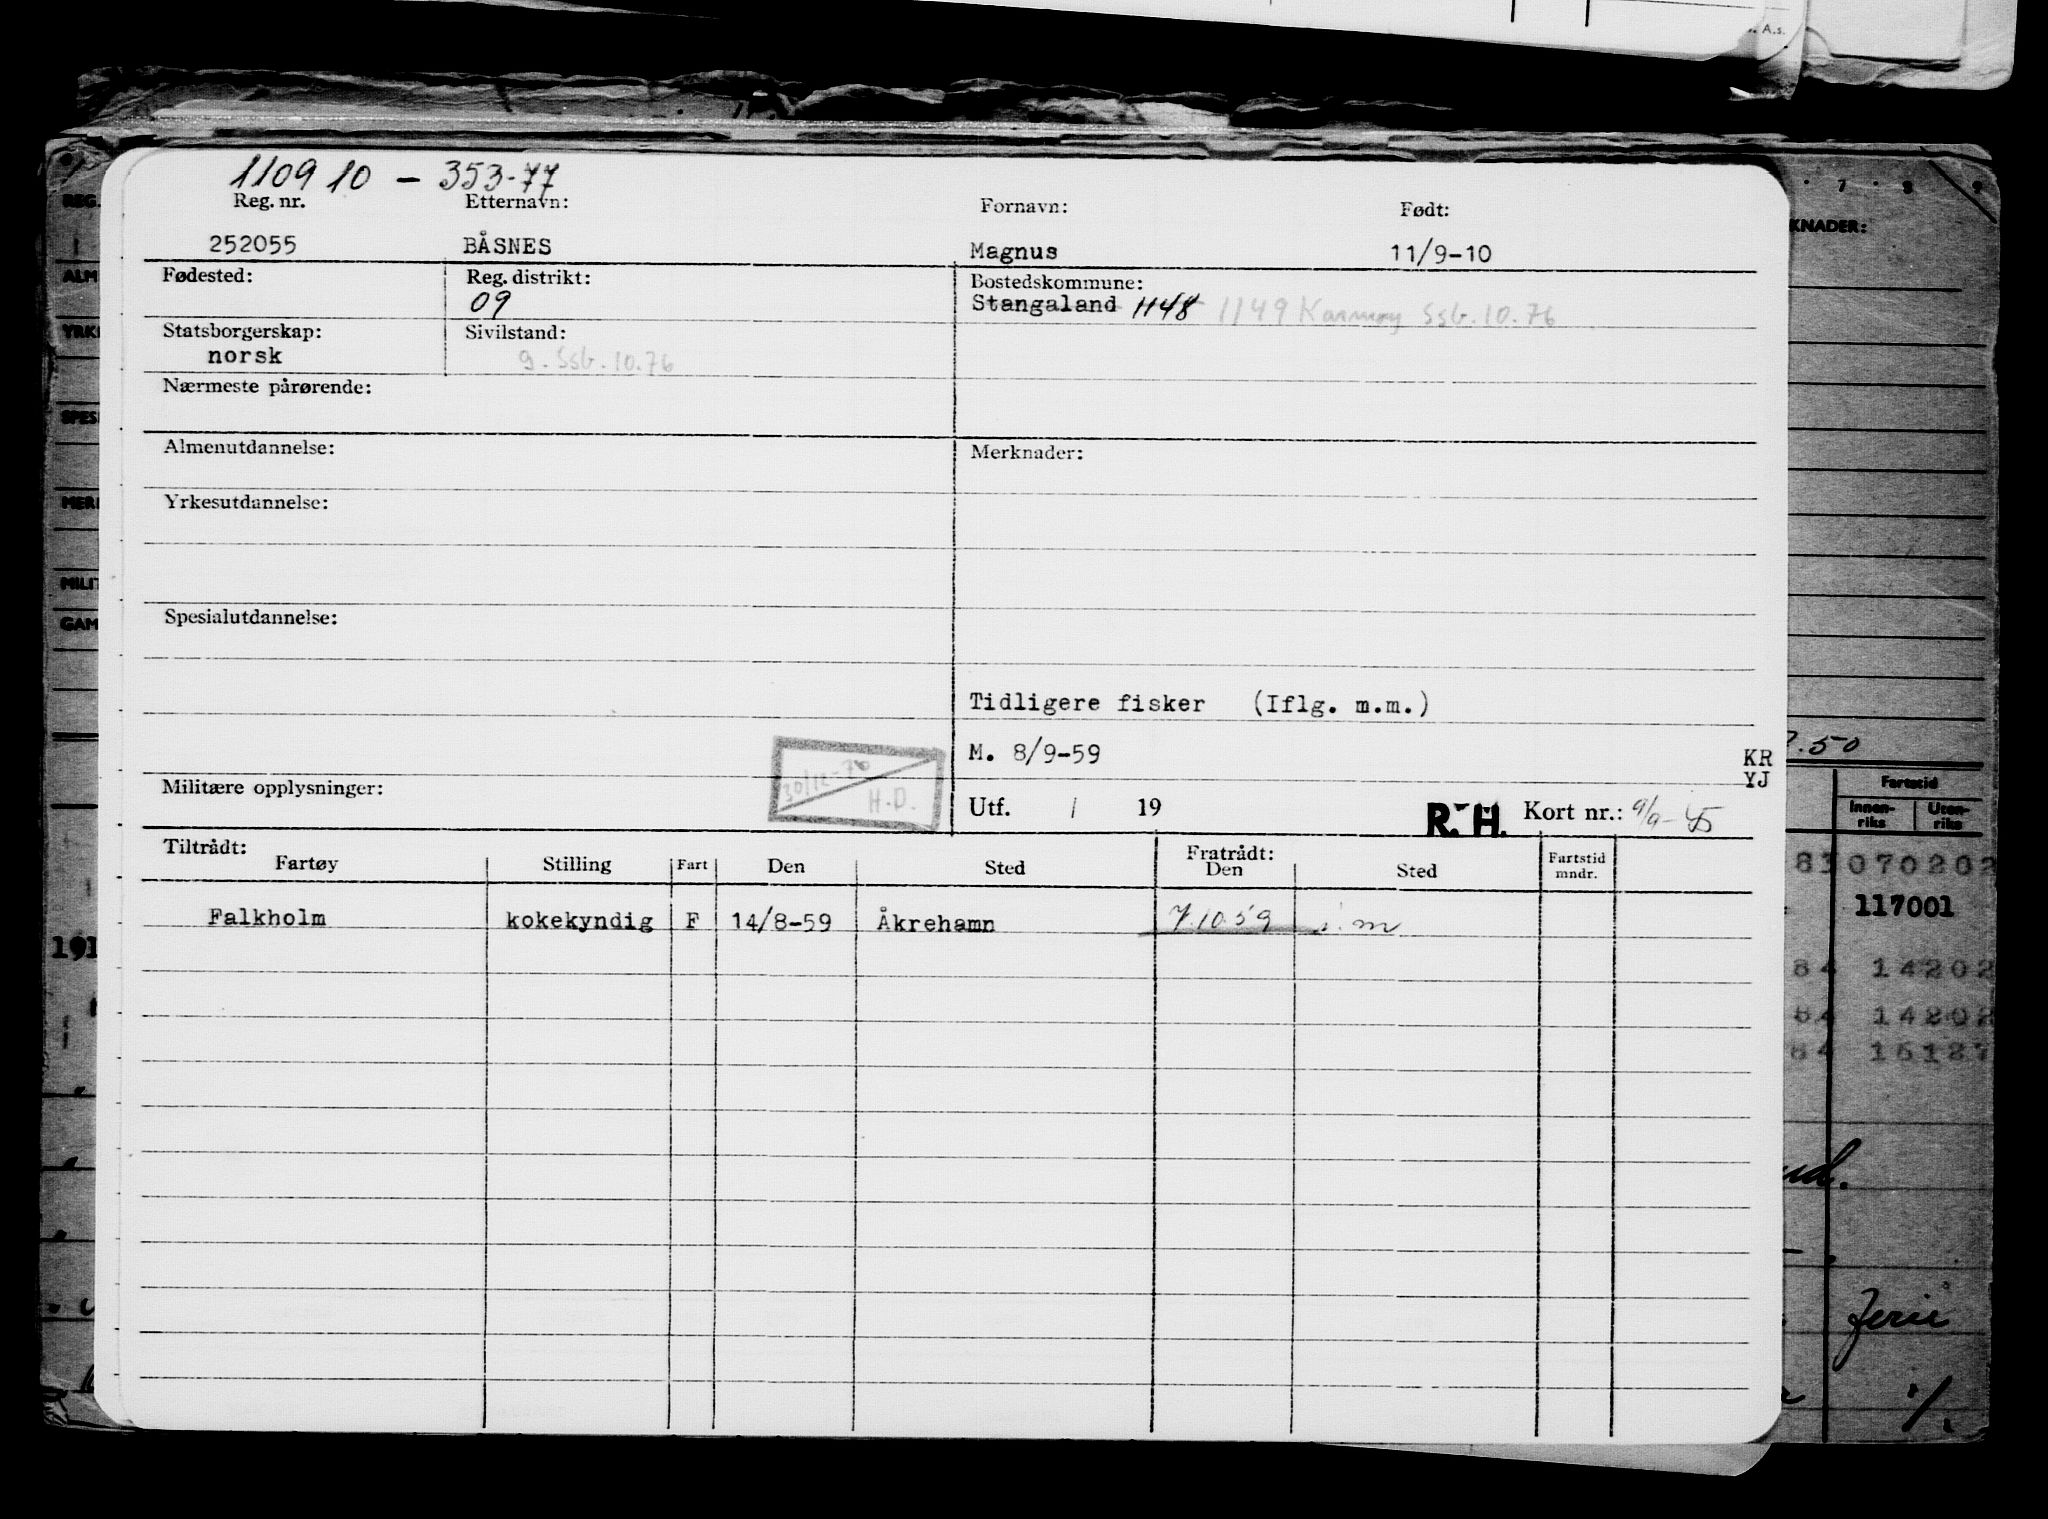 A.s.
110910 - 353-77
Reg. nr. Etternavn: Fornavn: Født:
252055 BÅSNES Magnus 11/9-10
Fødested: Reg. distrikt: Bostedskommune:
09 Stangaland 1148 1149 Karmøy Ssb. 10.76
Statsborgerskap: Sivilstand:
norsk g. Ssb. 10.76
Nærmeste pårørende:
Almenutdannelse: Merknader:
Yrkesutdannelse:
Spesialutdannelse:
Tidligere fisker (Iflg. m.m.)
M. 8/9-59
KR
YJ
30/12-76
H.D.
Militære opplysninger: Utf. / 19 R. H. Kort nr.:
Tiltrådt: Fratrådt:
Fartøy Stilling Fart Den Sted Den Sted Fartstid mndr.
Falkholm kokekyndig F 14/8-59 Åkrehamn 7.10.59 s.m
KNADER:
7 8 9
.50
Fartstid
Innen-riks Uten-riks
83070202
117001
84 14202
84 14202
84 15187
Ferie
REG.
ALM
YRKE
SPES
MERK
MILIT
GAM
191